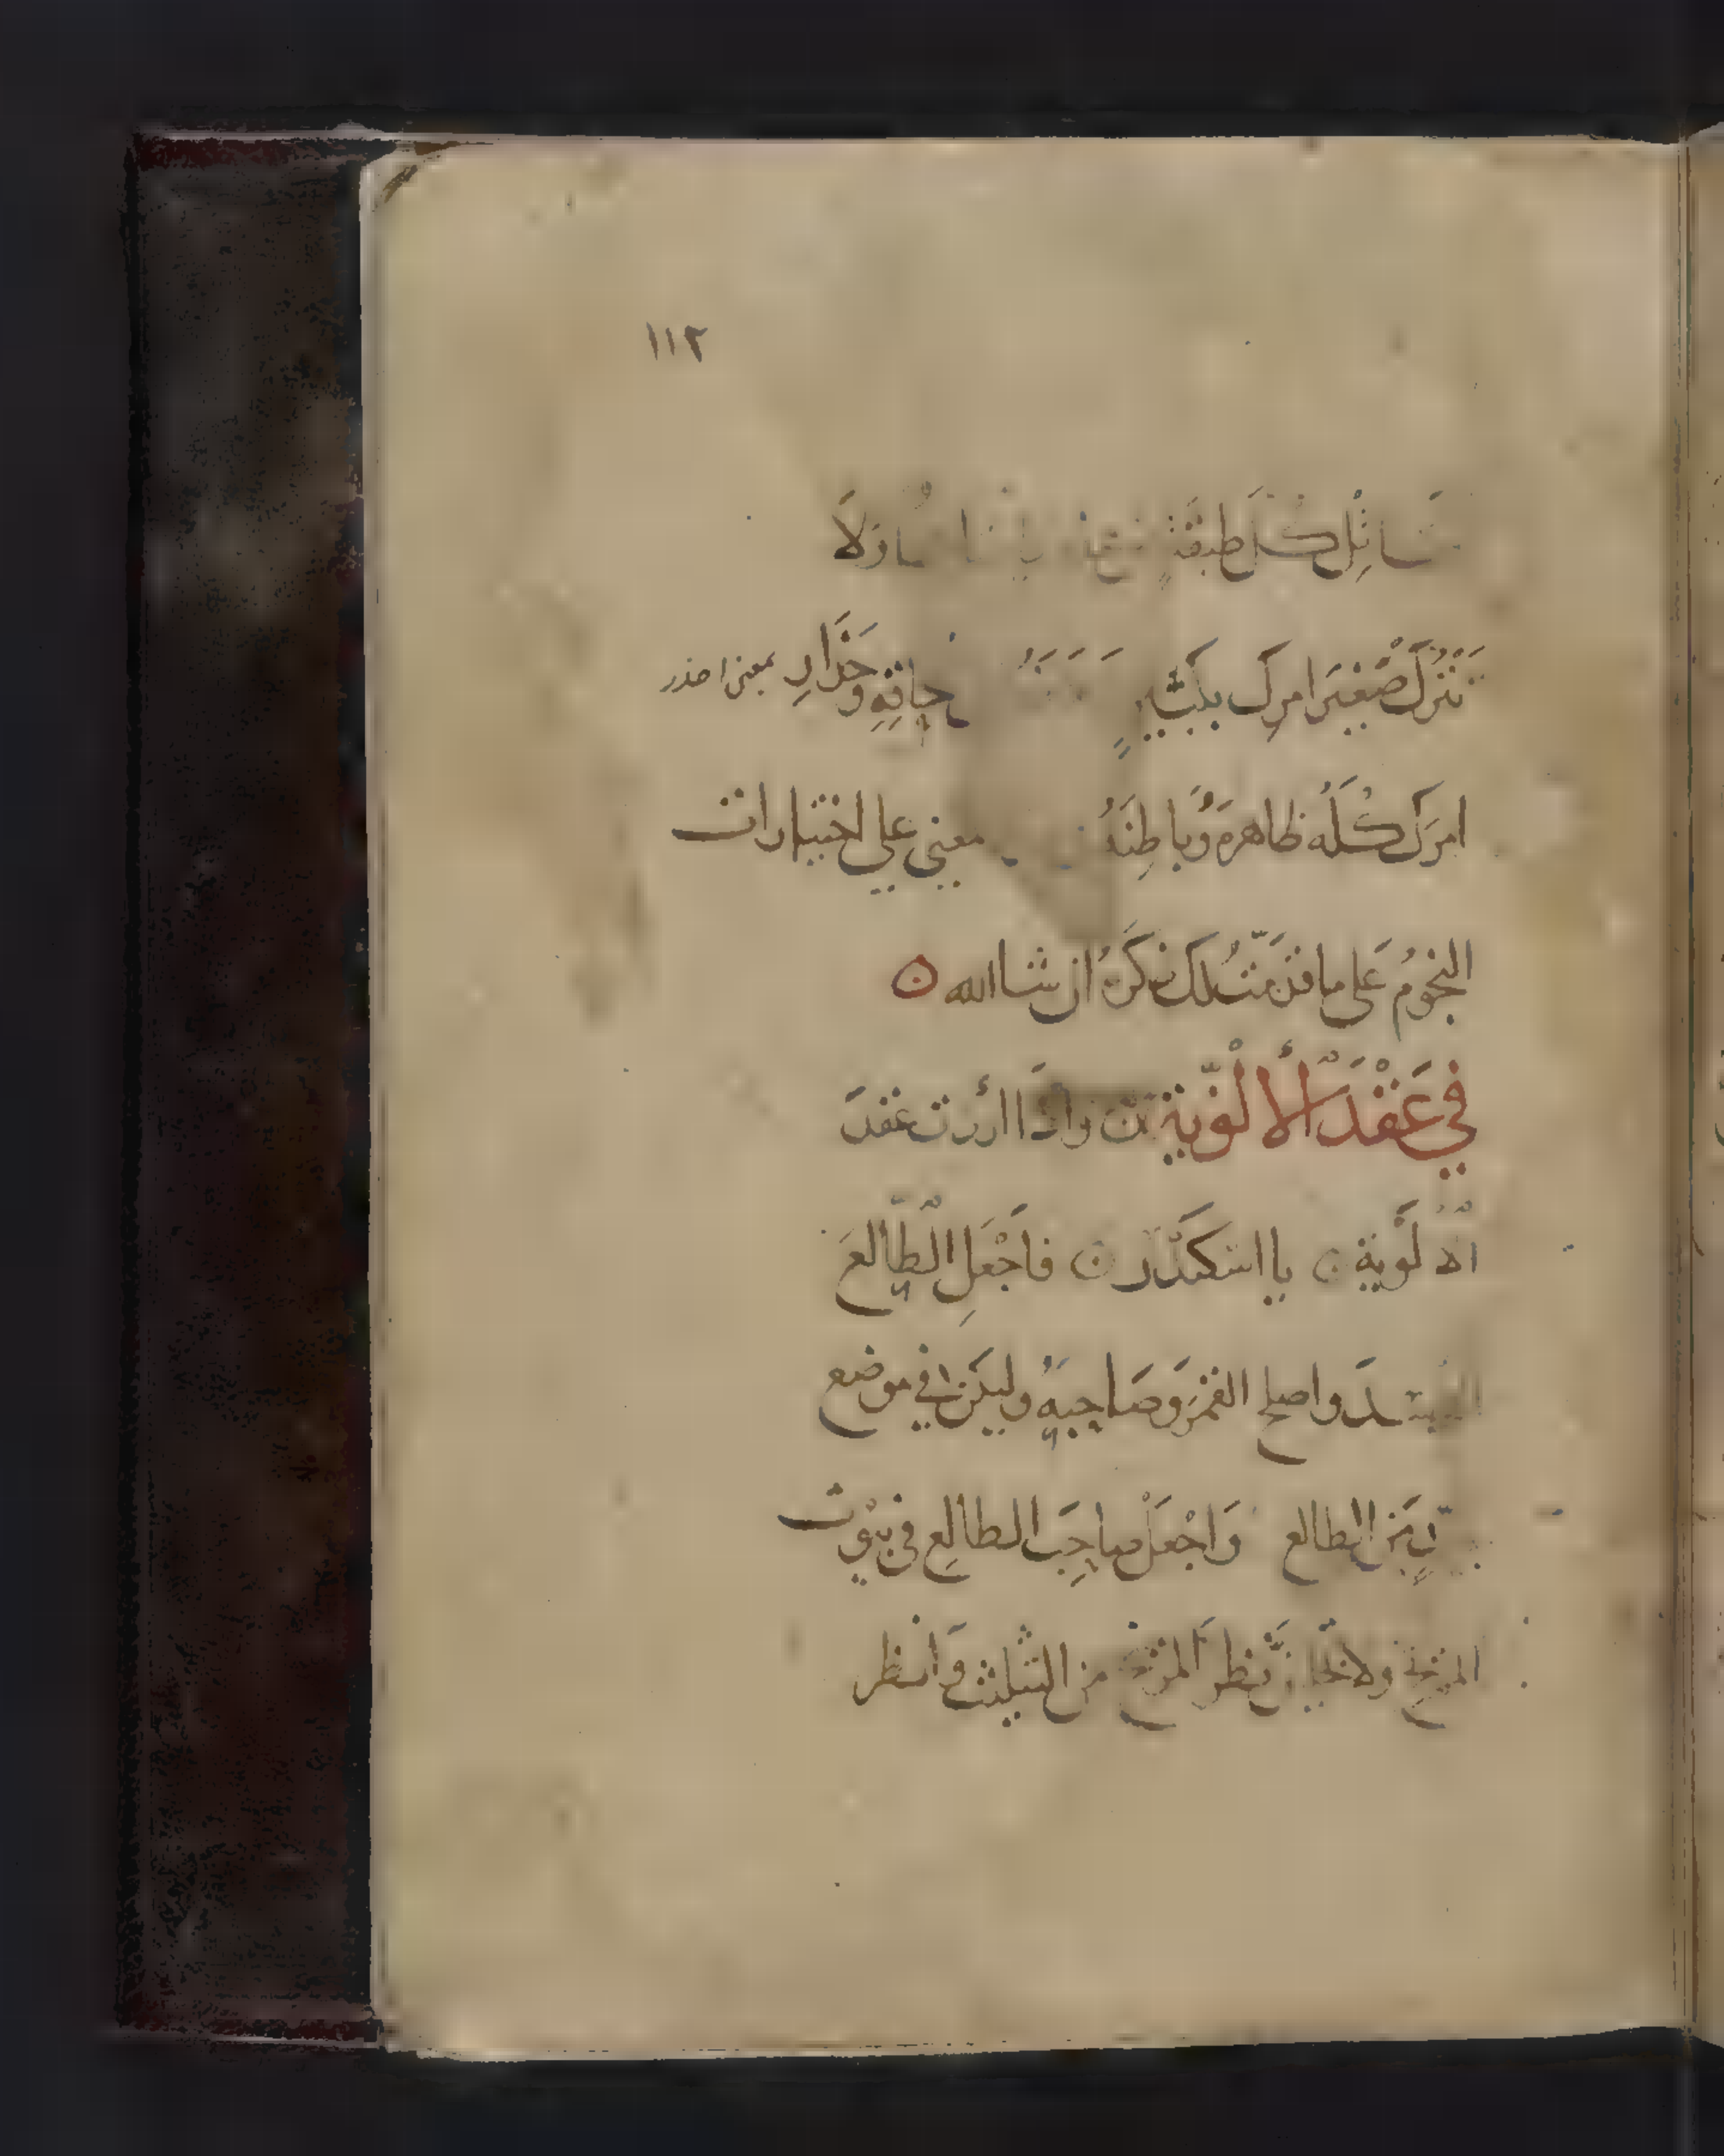 ١١٢
كُلَّ طبقةٍ وَلَا
تَتْرُكْ صَغيرَ امرِكَ بكبيرٍ وَحَذَارِ بمعنى احذر
امرَكَ كُلَّه ظاهرهَ وَبَاطِنَهُ معنى على اختيارات
النجُومُ عَلى ما قدّمتُ لك ذكرَهُ ان شا الله
في عَقْدَ الْأَلْوِيَة واذَا أردت عقدَ
الْأَلْوية يا اسكندَر فاجْعَلِ الطَّالعَ
واصلح القمَرَ وَصَاحِبَهُ وليكن في موضع
مَنَ الطالع وَاجْعَلْ صاحِبَ الطالعِ في بيُوت
المرّيخ ولا نظر المرّيخ من التثليث وَانظر